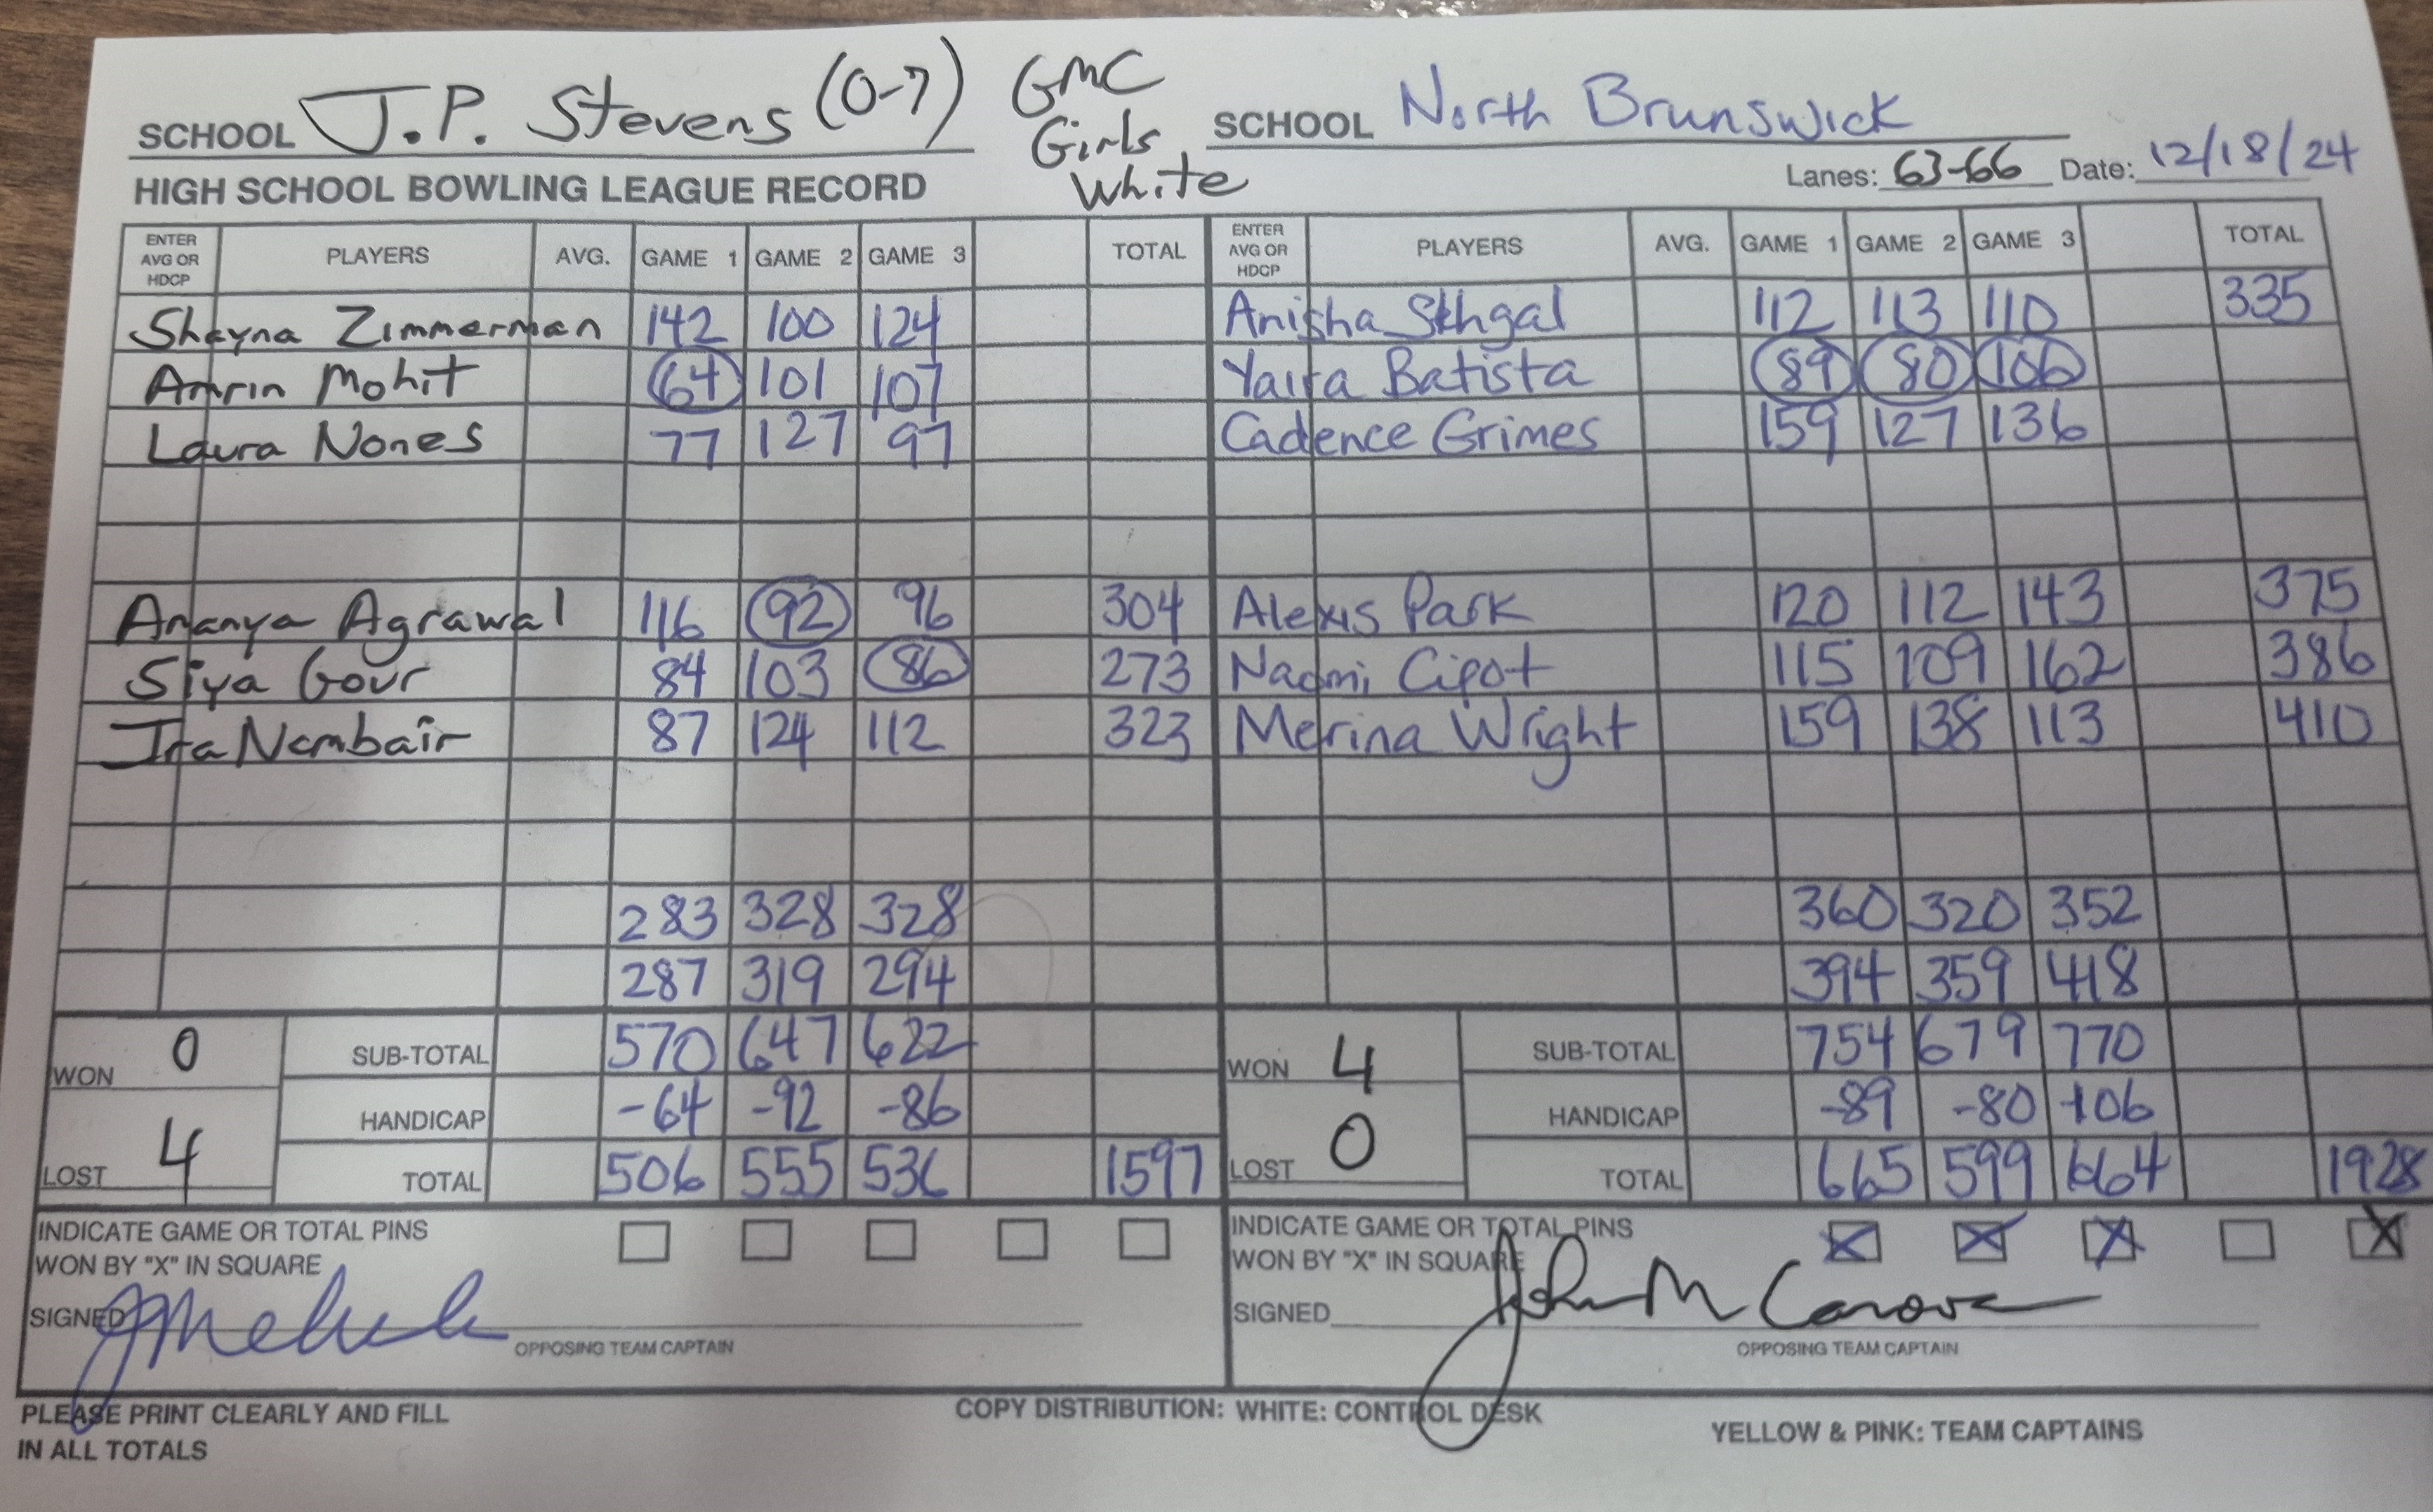 SCHOOL J.P. Stevens (0-7) GMC Girls White SCHOOL North Brunswick
HIGH SCHOOL BOWLING LEAGUE RECORD Lanes: 63-66 Date: 12/18/24
ENTER AVG OR HDCP PLAYERS AVG. GAME 1 GAME 2 GAME 3 TOTAL ENTER AVG OR HDCP PLAYERS AVG. GAME 1 GAME 2 GAME 3 TOTAL
Shayna Zimmerman 142 100 124 Anisha Sehgal 112 113 110 335
Amrin Mohit 64 101 107 Yaira Batista 89 80 106
Laura Nones 77 127 97 Cadence Grimes 159 127 136
Ananya Agrawal 116 92 96 304 Alexis Park 120 112 143 375
Siya Gour 84 103 86 273 Naomi Cipot 115 109 162 386
Ira Nambair 87 124 112 323 Merina Wright 159 138 113 410
283 328 328 360 320 352
287 319 294 394 359 418
WON 0 SUB-TOTAL 570 647 622 WON 4 SUB-TOTAL 754 679 770
HANDICAP -64 -92 -86 HANDICAP -89 -80 -106
LOST 4 TOTAL 506 555 536 1597 LOST 0 TOTAL 665 599 664 1928
INDICATE GAME OR TOTAL PINS INDICATE GAME OR TOTAL PINS
WON BY "X" IN SQUARE WON BY "X" IN SQUARE X X X X
SIGNED SIGNED John M
OPPOSING TEAM CAPTAIN OPPOSING TEAM CAPTAIN
PLEASE PRINT CLEARLY AND FILL COPY DISTRIBUTION: WHITE: CONTROL DESK YELLOW & PINK: TEAM CAPTAINS
IN ALL TOTALS